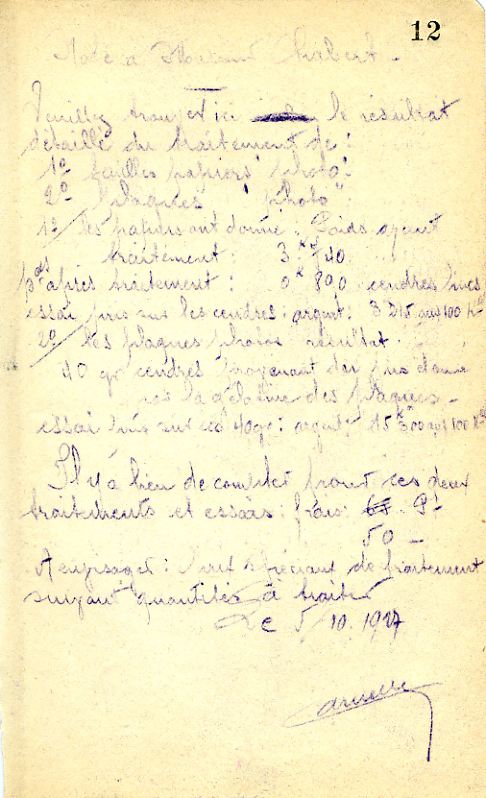 12
Note à Monsieur
Veuillez trouver ici le résultat
détaillé du traitement de :
1º feuilles papiers "photo"
2º plaques "photo"
1º/ les papiers ont donné : Poids avant
traitement : 3 k 740
pds après traitement : 0 k 800 cendres
essai pris sur les cendres : argent : 3 215 aux 100 K
2º/ les plaques photos résultat
40 gr cendres provenant du
la gélatine des plaques -
essai pris sur ces 40 gr : argent : 15 k 300 aux 100 K
Il y a lieu de compter pour ces deux
traitements et essais : frais :
50 -
A envisager : prix de traitement
suivant quantités à traiter
Le 5/10. 1927